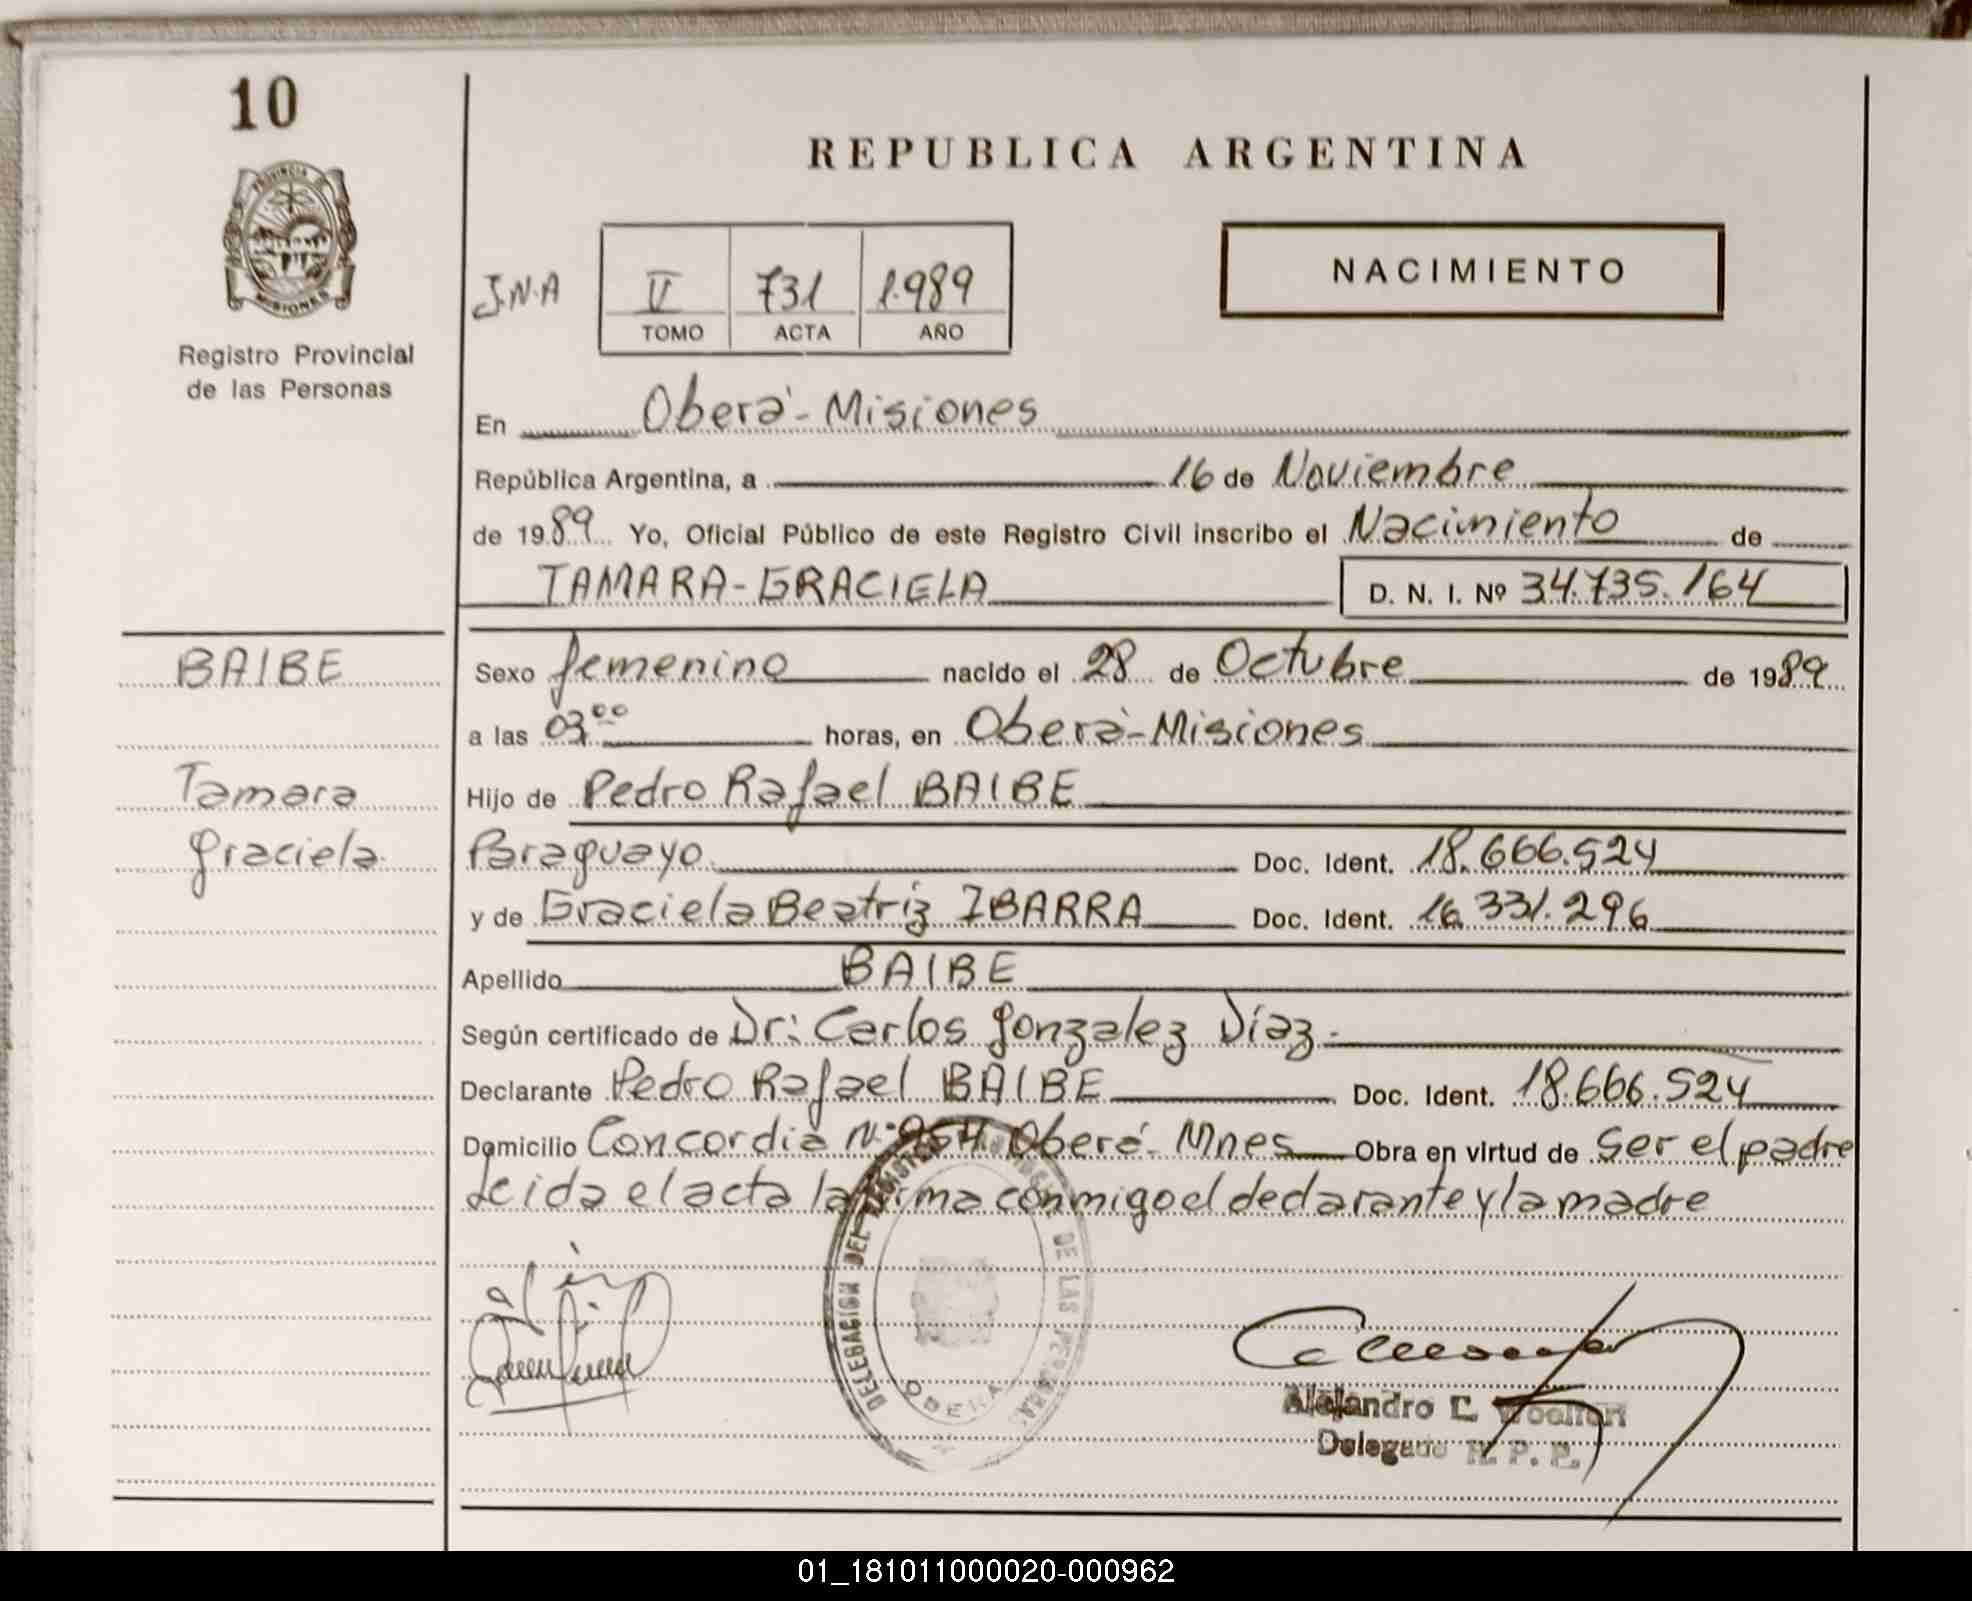 10
PROVINCIA DE
MISIONES
Registro Provincial
de las Personas
BAIBE
Tamara
Graciela
REPUBLICA ARGENTINA
NACIMIENTO
J.N.A
V 731 1.989
TOMO ACTA AÑO
En Oberá - Misiones
República Argentina, a 16 de Noviembre
de 1989 Yo, Oficial Público de este Registro Civil inscribo el Nacimiento de
TAMARA - GRACIELA D. N. I. Nº 34.735.164
Sexo femenino nacido el 28 de Octubre de 1989
a las 03 00 horas, en Oberá - Misiones
Hijo de Pedro Rafael BAIBE
Paraguayo Doc. Ident. 18.666.524
y de Graciela Beatriz IBARRA Doc. Ident. 16.331.296
Apellido BAIBE
Según certificado de Dr: Carlos Gonzalez Díaz.
Declarante Pedro Rafael BAIBE Doc. Ident. 18.666.524
Domicilio Concordia Nº Oberá - Mnes Obra en virtud de ser el padre
Leida el acta la firma conmigo el declarante y la madre
DELEGACION DEL DE LAS PERSONAS
OBERA
Alejandro C.
Delegado R. P. P.
01_181011000020-000962